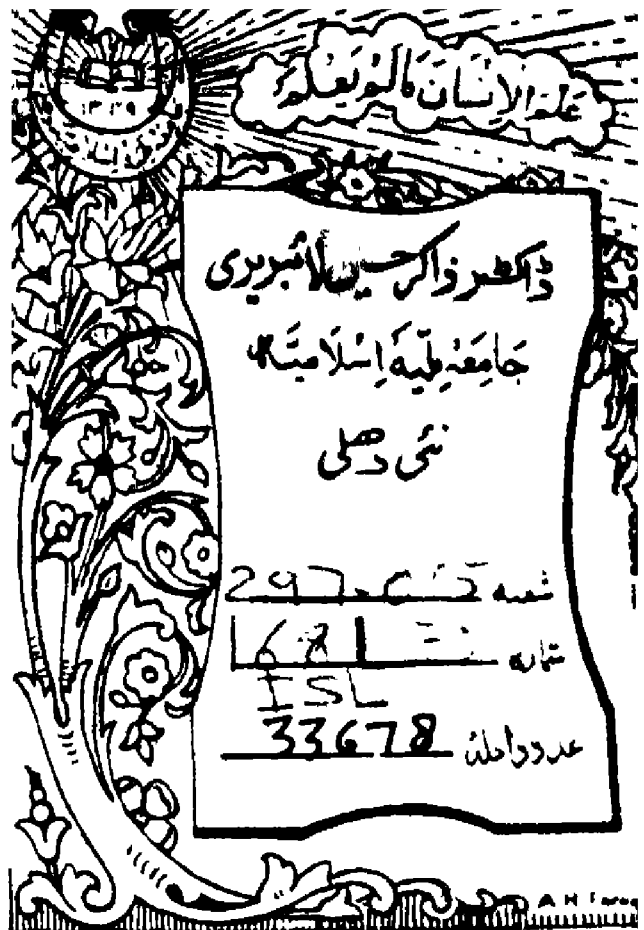 عَلَّمَ الْإِنْسَانَ مَا لَمْ يَعْلَمْ
۱۳۳۹
ڈاکٹر ذاکر حسین لائبریری
جَامِعَہ مِلّیَہ اِسْلَامِیَہ
نئی دھلی
شعبہ 297.
شمارہ 168
ISL
عدد داخلہ 33678
A H Faroo